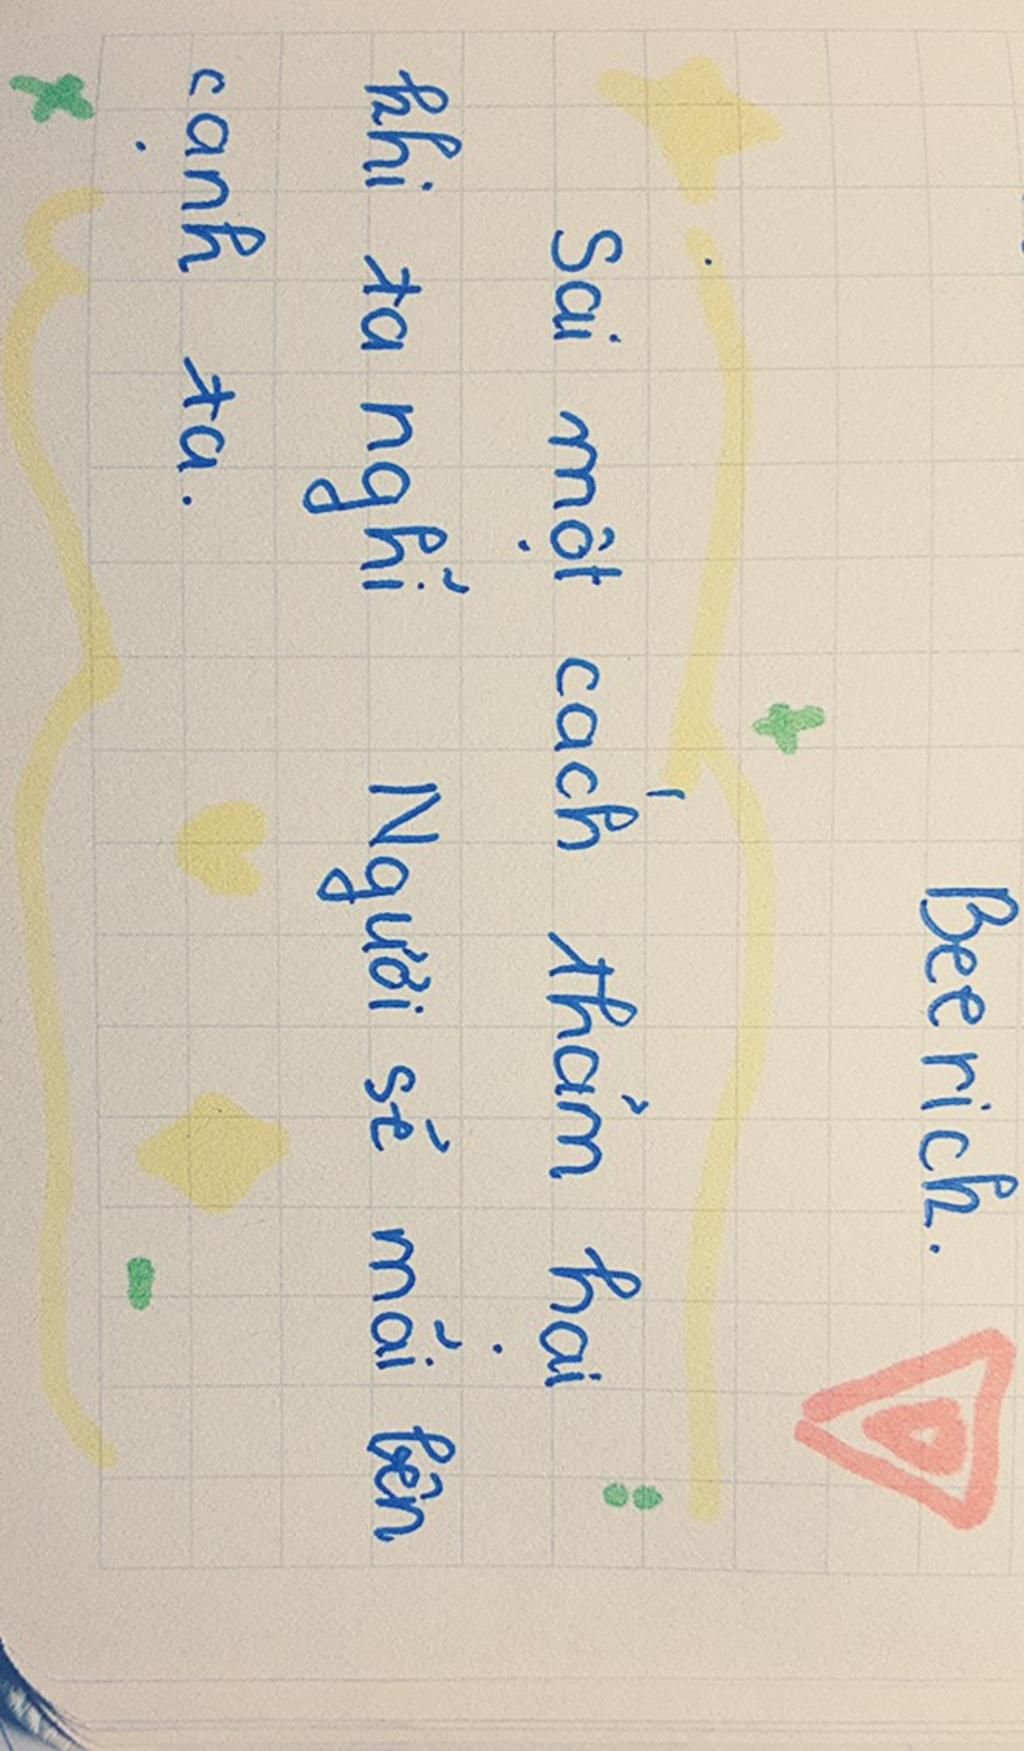 Beerich.
Sai một cách thảm hại
khi ta nghỉ Người sẻ mải bên
cạnh ta.